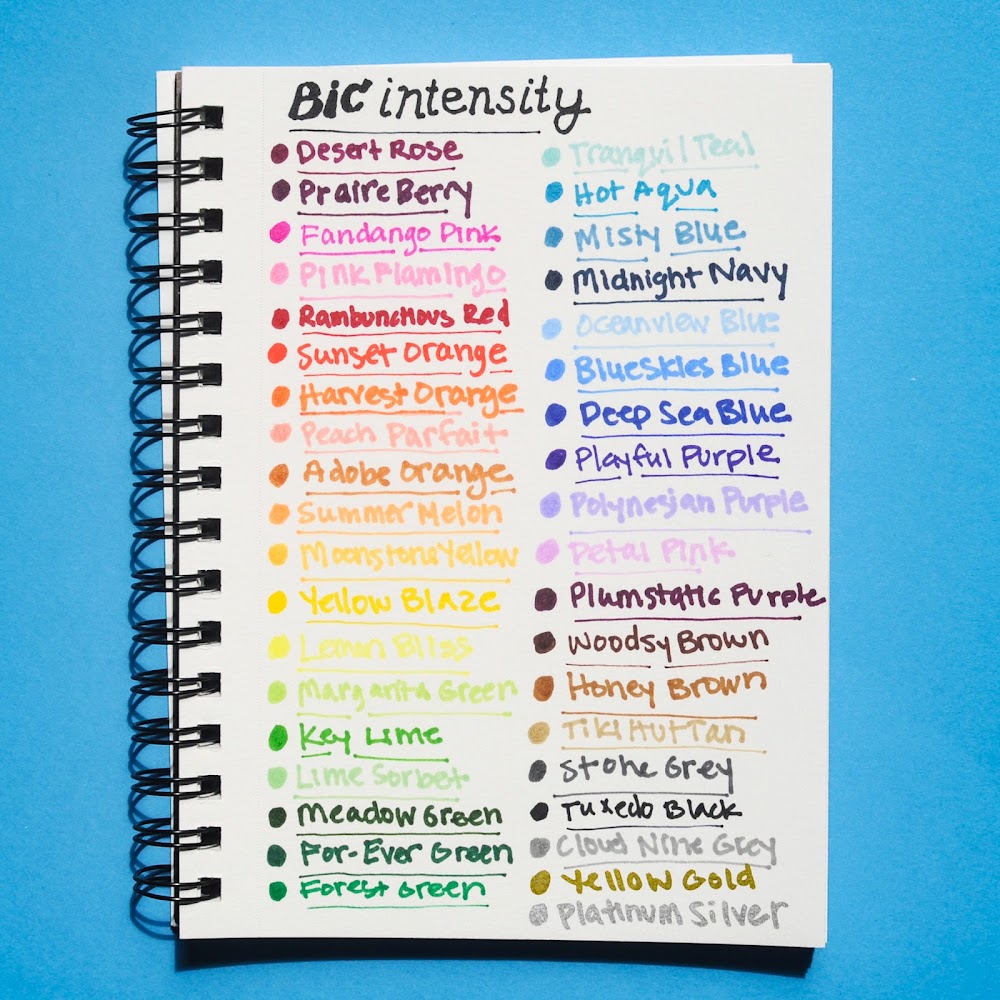 BIC intensity
Desert Rose
Praire Berry
Fandango Pink
Pink Flamingo
Rambunctious Red
Sunset Orange
Harvest Orange
Peach Parfait
Adobe Orange
Summer Melon
Moonstone Yellow
Yellow Blaze
Lemon Bliss
Margarita Green
Key Lime
Lime Sorbet
Meadow Green
For-Ever Green
Forest Green
Tranquil Teal
Hot Aqua
Misty Blue
Midnight Navy
Oceanview Blue
Blueskies Blue
Deep Sea Blue
Playful Purple
Polynesian Purple
Petal Pink
Plumstatic Purple
Woodsy Brown
Honey Brown
Tiki Hut Tan
Stone Grey
Tuxedo Black
Cloud Nine Grey
Yellow Gold
Platinum Silver